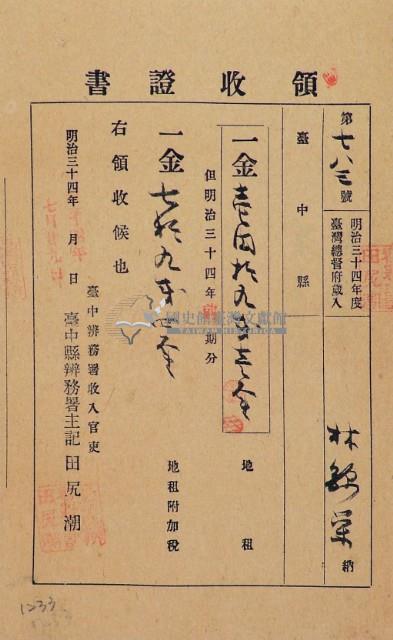 領收證書
第七八三號
明治三十四年度
臺灣總督府歲入
臺中縣
林錦榮 納
一金壹圓拾九錢壹厘 地租
但明治三十四年 期分
一金七拾九錢四厘 地租附加税
右領收候也
明治三十四年 月 日
臺中辨務署收入官吏
臺中縣辨務署主記田尻潮
國史館臺灣文獻館
TAIWAN HISTORICA
1233